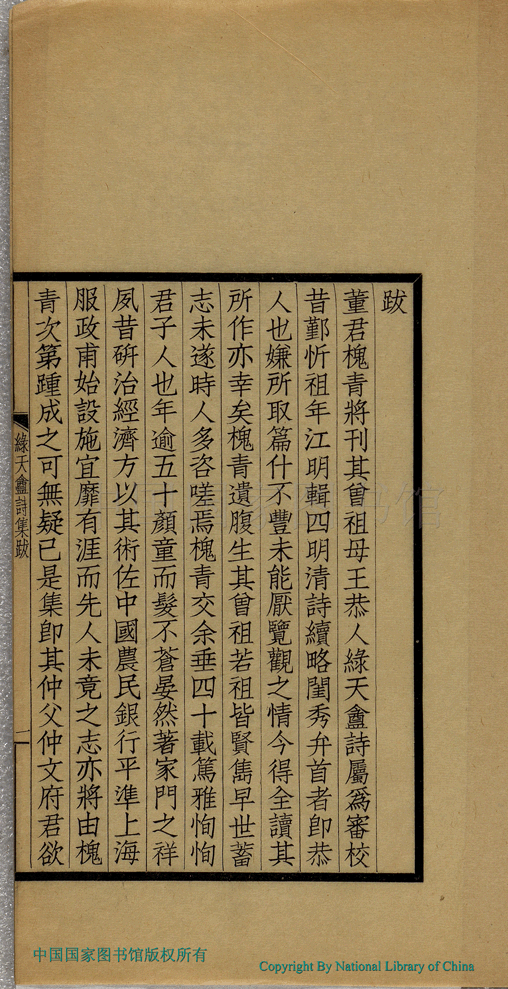 跋
董君槐青將刊其曾祖母王恭人綠天盦詩屬爲審校
昔鄞忻祖年江明輯四明清詩續略閨秀弁首者卽恭
人也嫌所取篇什不豐未能厭覽觀之情今得全讀其
所作亦幸矣槐青遺腹生其曾祖若祖皆賢雋早世蓄
志未遂時人多咨嗟焉槐青交余垂四十載篤雅恂恂
君子人也年逾五十顏童而髮不蒼晏然著家門之祥
夙昔硏治經濟方以其術佐中國農民銀行平準上海
服政甫始設施宜靡有涯而先人未竟之志亦將由槐
青次第踵成之可無疑已是集卽其仲父仲文府君欲
綠天盦詩集跋
一
中国国家图书馆版权所有
Copyright By National Library of China